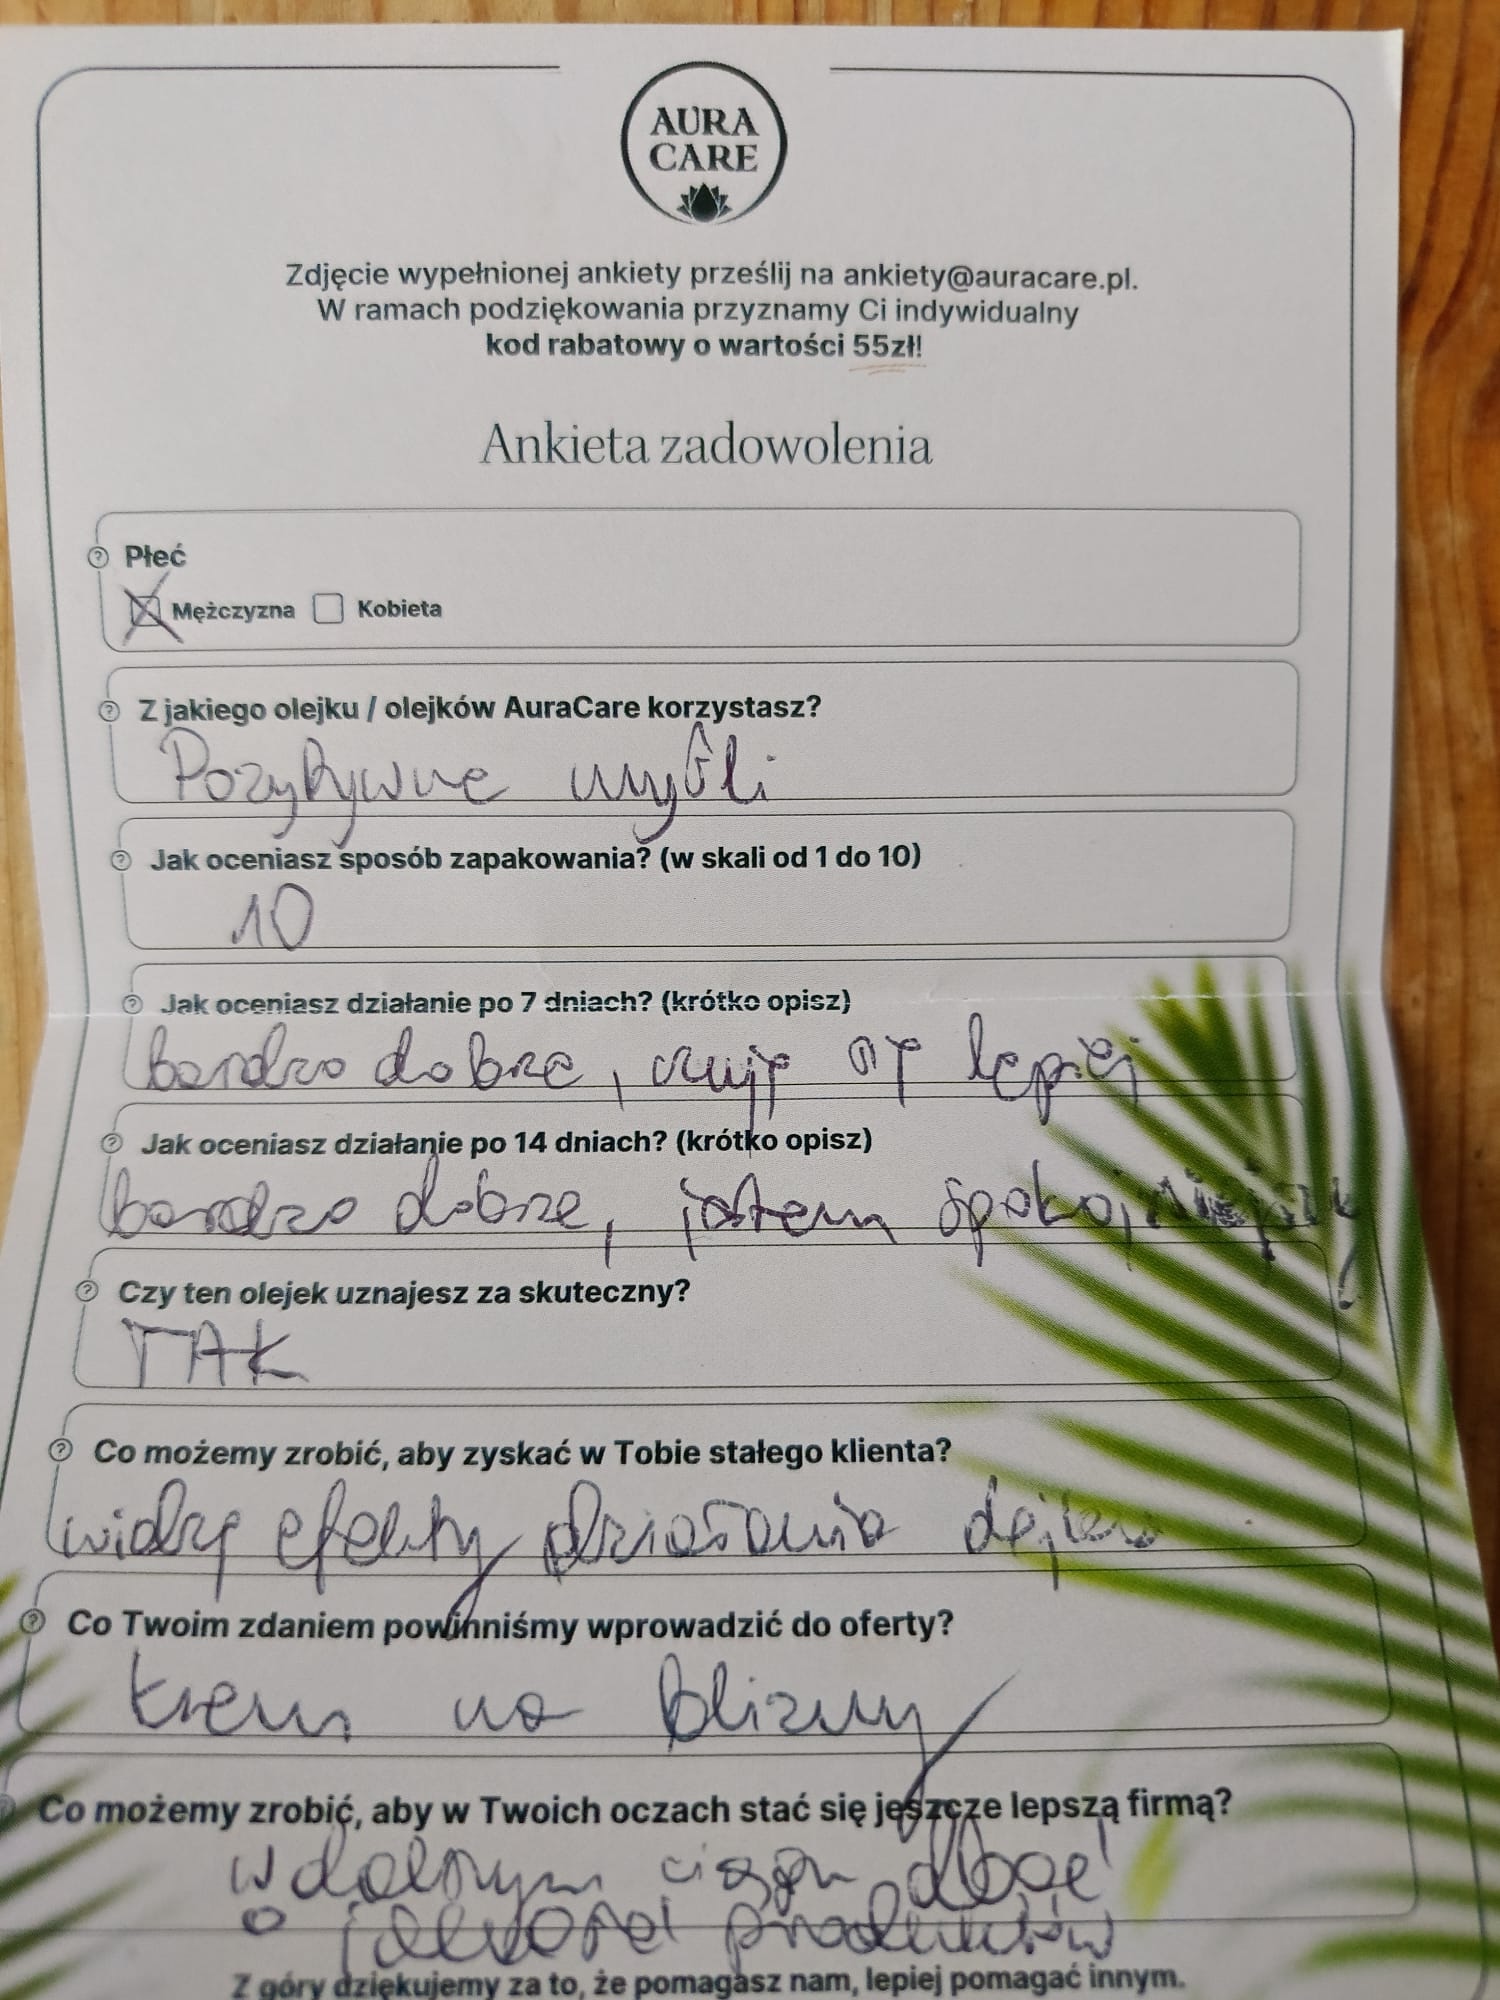 AURA
CARE
Zdjęcie wypełnionej ankiety prześlij na ankiety@auracare.pl.
W ramach podziękowania przyznamy Ci indywidualny
kod rabatowy o wartości 55zł!
Ankieta zadowolenia
Płeć
Mężczyzna Kobieta
Z jakiego olejku / olejków AuraCare korzystasz?
Pozytywne myśli
Jak oceniasz sposób zapakowania? (w skali od 1 do 10)
10
Jak oceniasz działanie po 7 dniach? (krótko opisz)
bardzo dobrze, czuję się lepiej
Jak oceniasz działanie po 14 dniach? (krótko opisz)
bardzo dobrze, jestem spokojniejszy
Czy ten olejek uznajesz za skuteczny?
TAK
Co możemy zrobić, aby zyskać w Tobie stałego klienta?
widzę efekty działania
Co Twoim zdaniem powinniśmy wprowadzić do oferty?
krem na blizny
Co możemy zrobić, aby w Twoich oczach stać się jeszcze lepszą firmą?
w dalszym ciągu dbać
o jakość produktów
Z góry dziękujemy za to, że pomagasz nam, lepiej pomagać innym.